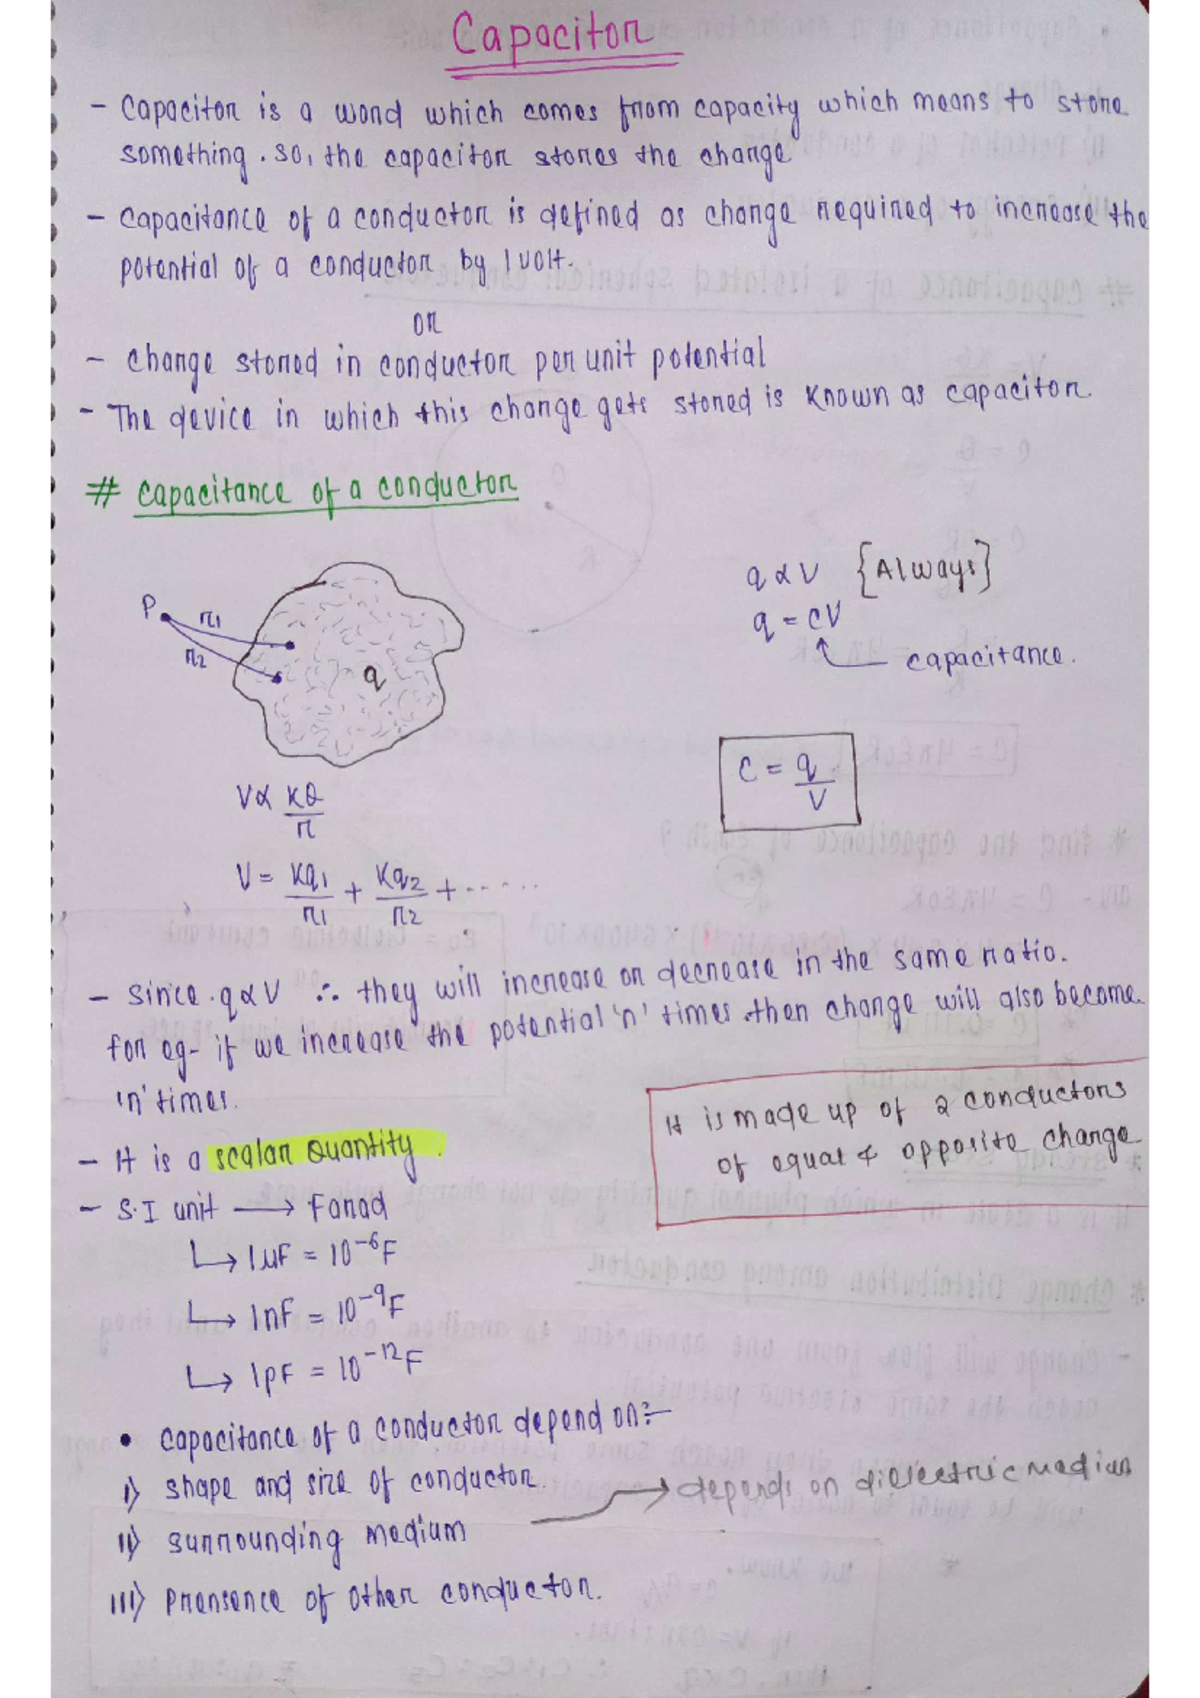 Capacitor
- Capacitor is a word which comes from capacity which means to store
something. So, the capacitor stores the charge
- Capacitance of a conductor is defined as charge required to increase the
potential of a conductor by 1 volt.
OR
- Charge stored in conductor per unit potential
- The device in which this charge gets stored is known as capacitor.
# Capacitance of a conductor
q ∝ V {Always}
P r1
q = CV
r2
capacitance.
q
C = q/V
V ∝ KQ/r
V = Kq1/r1 + Kq2/r2 + ......
- Since q ∝ V ∴ they will increase or decrease in the same ratio.
for eg- if we increase the potential 'n' times then charge will also become
'n' times.
It is made up of 2 conductors
of equal & opposite charge
- It is a scalar quantity.
- S.I unit → Farad
↳ 1 μF = 10⁻⁶F
↳ 1nF = 10⁻⁹F
↳ 1pF = 10⁻¹²F
• Capacitance of a conductor depend on:-
i) shape and size of conductor.
→ depends on dielectric medium
ii) surrounding medium
iii) Prensence of other conductor.